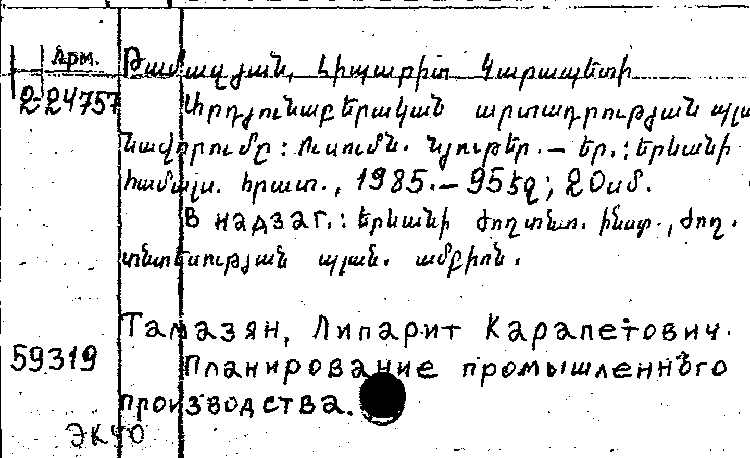 Արմ. Թամազյան, Լիպարիտ Կարապետի
2-24757 Արդյունաբերական արտադրության պլա
նավորումը: Ուսումն. նյութեր.— Եր.: Երևանի
համալս. հրատ., 1985.— 95 էջ; 20 սմ.
В надзаг.: Երևանի ժողտնտ. ինստ., ժող.
տնտեսության պլան. ամբիոն.
Тамазян, Липарит Карапетович.
59319 Планирование промышленного
производства.
ЭКЧО